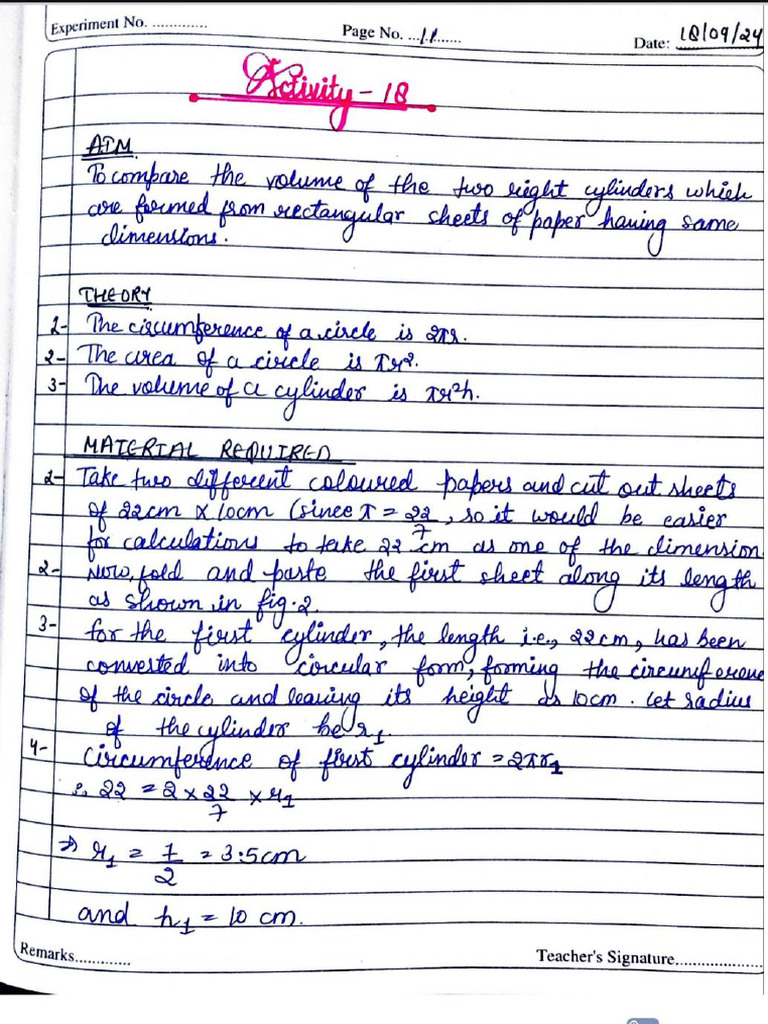 Experiment No. .............
Page No. ...11.......
Date: 18/09/24
Activity - 18
AIM
To compare the volume of the two right cylinders which
are formed from rectangular sheets of paper having same
dimensions.
THEORY
1- The circumference of a circle is 2πr.
2- The area of a circle is πr².
3- The volume of a cylinder is πr²h.
MATERIAL REQUIRED
1- Take two different coloured papers and cut out sheets
of 22cm × 10cm (since π = 22/7, so it would be easier
for calculations to take 22 cm as one of the dimension.
2- Now, fold and paste the first sheet along its length
as shown in fig.2.
3- for the first cylinder, the length i.e., 22cm, has been
converted into circular form, forming the circumference
of the circle and leaving its height as 10cm. Let radius
of the cylinder be r₁.
4- Circumference of first cylinder = 2πr₁
∴ 22 = 2 × 22/7 × r₁
⇒ r₁ = 7/2 = 3.5cm
and h₁ = 10 cm.
Remarks.............
Teacher's Signature....................